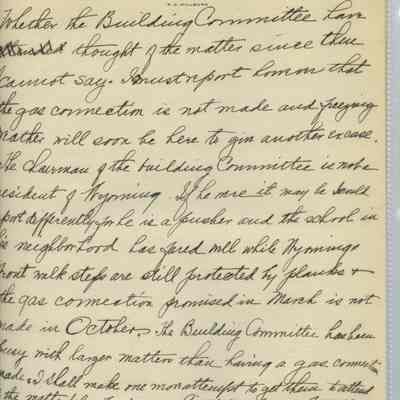 Whether the Building Committee have
thought of the matter since then
cannot say. I must report however that
the gas connection is not made and freezing
weather will soon be here to give another excuse.
The Chairman of the building Committee is not a
resident of Wyoming. If he were it may be I could
report differently for he is a pusher and the school in
his neighborhood has fared well while Wyomings
front walk steps are still protected by planks &
the gas connection promised in March is not
made in October. The Building Committee has been
busy with larger matters than having a gas connect
made. I shall make one more attempt to get them to attend
the matter